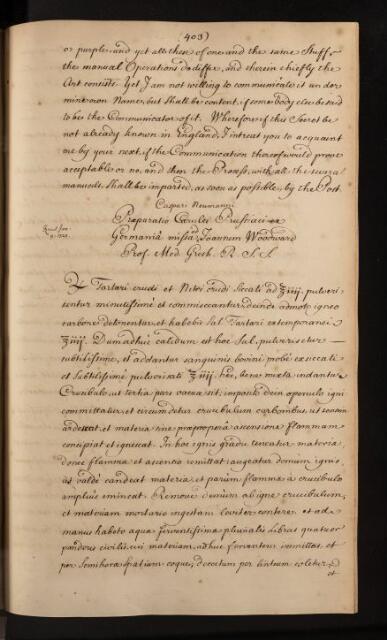 (403)
or purple: and yet all these of one and the same Stuff
the manual Operations do differ, and therein chiefly the
Art consists. Yet I am not willing to communicate it under
mine own Name, but shall be content, if some body else be said
to be the Communicator of it. Wherefore if this Secret be
not already known in England, I intreat you to acquaint
me by your next, if the Communication thereof would prove
acceptable or no, and then the Process, with all the
shall be imparted, as soon as possible, by the Post.
Caspar Neumann
Preparatio Cœrulei Prussiaci ex
Germaniâ missa Joannem Woodward
Prof. Med Gresh. R. S. S.
Tartari crudi et Nitri crudi siccati ad ℥iiij. pulveri
sentur minutissimè et commisceantur, deinde admoto igneo
carbone detonentur, et habebis Sal Tartari extemporanei
℥iiij. Dum adhuc calidum est hoc Sal, pulverisetur
subtilissimè, et addantur sanguinis bovini probè exsiccati
et subtilissimè pulverisati ℥iiij. hæc, bene mixta indantur
Crucibulo, ut tertia pars vacua sit; imposito dein operculo igni
committatur, et circumdetur crucibulum carbonibus, ut sensim
ardescat et materia sine præproperâ ascensione flammam
concipiat et ignescat. In hoc ignis gradu teneatur materia,
donec flamma et ascensio remittat; augeatur demum ignis,
ut valdè candeat materia, et parum flammæ à crucibulo
amplius emineat. Remove demum ab igne crucibulum,
et materiam mortario ingestam leviter contere, et ad
manus habeto aquæ ferventissimæ pluvialis libras quatuor
ponderis civilis, cui materiam adhuc ferventem immittas, et
per Semihoræ spatium coque; decoctum per linteum coletur,
et